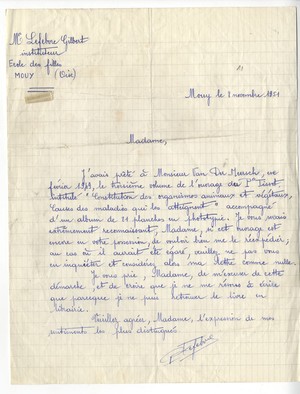 Mr Lefebvre Gilbert
instituteur
Ecole des filles
MOUY (Oise)
Mouy le 2 novembre 1951
Madame,
J'avais prêté à Monsieur Van Der Meersch, en
février 1949, le troisième volume de l'ouvrage du Pr Tissot
intitulé "Constitution des organismes animaux et végétaux,
causes des maladies qui les atteignent" accompagné
d'un album de planches en phototypie. Je vous serais
extrêmement reconnaissant, Madame, si cet ouvrage est
encore en votre possession, de vouloir bien me le réexpédier;
au cas où il aurait été égaré, veuillez ne pas vous
en inquiéter et considérer alors ma lettre comme nulle.
Je vous prie, Madame, de m'excuser de cette
démarche et de croire que je ne me résous à écrire
que parceque je ne puis retrouver le livre en
librairie.
Veuillez agréer, Madame, l'expression de mes
sentiments les plus distingués
Lefebvre